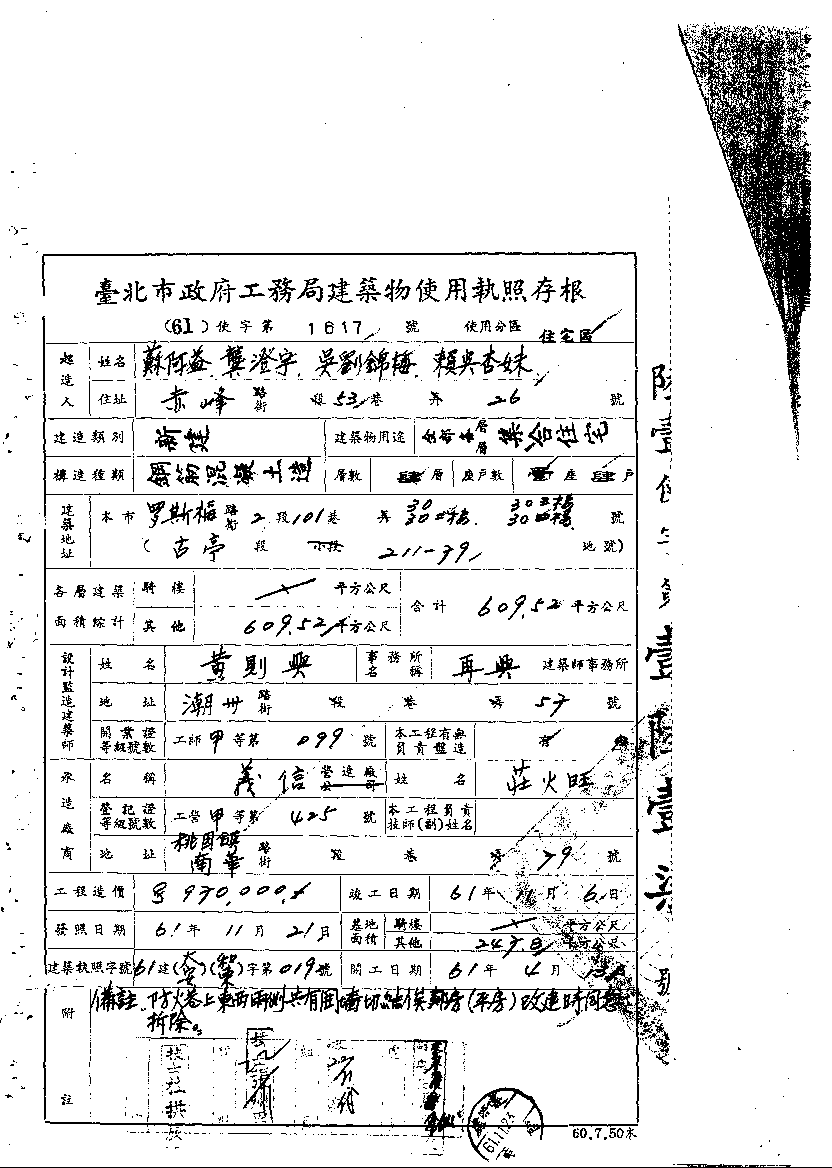 臺北市政府工務局建築物使用執照存根
(61)使字第 1617 號 使用分區 住宅區
起造人 姓名 蘇阿益、龔澄宇、吳劉錦梅、賴吳杏妹
住址 赤峰 路街 段 53 巷 弄 26 號
建造類別 新建 建築物用途 集合住宅
構造種類 鋼筋混凝土造 層數 肆 層 座戶數 壹 座 肆 戶
建築地址 本市 罗斯福 路街 2 段 101 巷 弄 30 30二楼 30三楼 30四楼 號
(古亭 段 小段 211-39 地號)
各層建築面積綜計 騎樓 平方公尺 合計 609.52 平方公尺
其他 609.52 平方公尺
設計監造建築師 姓名 黃則興 事務所名稱 再興 建築師事務所
地址 潮州 路街 段 巷 弄 57 號
開業證等級號數 工師 甲 等第 099 號 本工程有無負責監造 有
承造廠商 名稱 義信 營造廠公司 姓名 莊火旺
登記證等級號數 工營 甲 等第 425 號 本工程負責技師(副)姓名
地址 桃園鎮南華 路街 段 巷 弄 79 號
工程造價 970,000 竣工日期 61 年 11 月 6 日
發照日期 61 年 11 月 21 日 基地面積 騎樓 平方公尺
其他 247.8 平方公尺
建築執照字號 61 建( )( )字第 019 號 開工日期 61 年 4 月 日
附註 備註:防火巷上東西兩側共有圍牆切結俟鄰房(平房)改建時同意
拆除。
61.11.23
60.7.50本